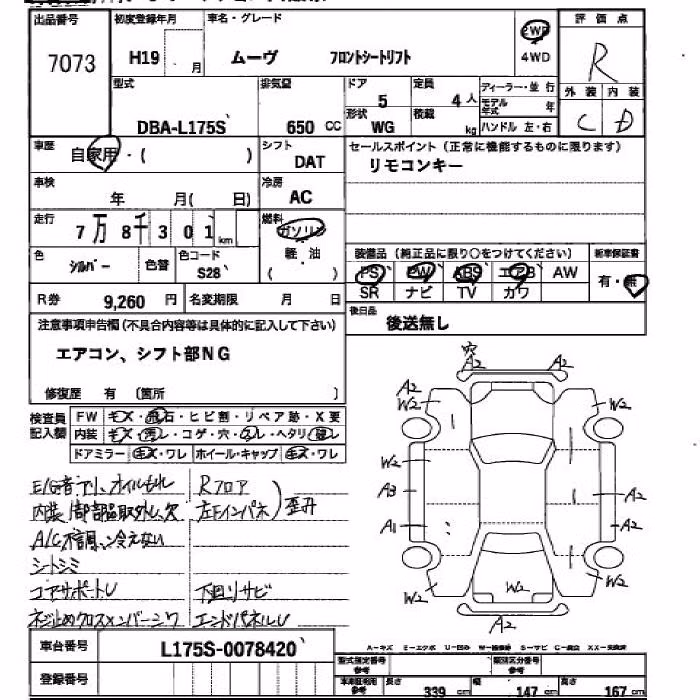 出品番号 初度登録年月 車名・グレード 2WD 評価点
7073 H19 月 ムーヴ フロントシートリフト 4WD R
型式 排気量 ドア 定員 ディーラー・並行 外装 内装
5 4人 モデル年式 年
DBA-L175S 650 CC 形状 WG 積載 kg ハンドル 左・右 C D
車歴 自家用・( ) シフト DAT セールスポイント (正常に機能するものに限ります)
リモコンキー
車検 年 月( 日) 冷房 AC
走行 7万8千301km 燃料 ガソリン
軽・油
( )
色 シルバー 色替 色コード S28 装備品 (純正品に限り○をつけてください) 新車保証書
PS PW ABS エアB AW 有・無
SR ナビ TV カワ
R券 9,260 円 名変期限 月 日 後日品
後送無し
注意事項申告欄(不具合内容等は具体的に記入して下さい)
エアコン、シフト部NG
修復歴 有 〔箇所 〕
検査員記入欄 FW キズ・飛石・ヒビ割・リペア跡・X要
内装 キズ・汚レ・コゲ・穴・スレ・ヘタリ
ドアミラー キズ・ワレ ホイール・キャップ キズ・ワレ
E/G音アリ、オイルモレ Rフロア
内装 欠 左Fインパネ 歪み
A/C不調、冷えない
シートシミ
コアサポートU 下回りサビ
ネジ止めクロスメンバーシワ エンドパネルU
A2 A2
A2 W2 W2
W2
A3 A2
A1 A2
W2 W2 W2
A2
車台番号 L175S-0078420
A-キズ E-エクボ U-凹み W-補修跡 S-サビ C-腐食 XX-交換済
登録番号 型式指定番号 参考 類別区分番号 参考
車庫証明用参考 長さ 339 cm 幅 147 cm 高さ 167 cm